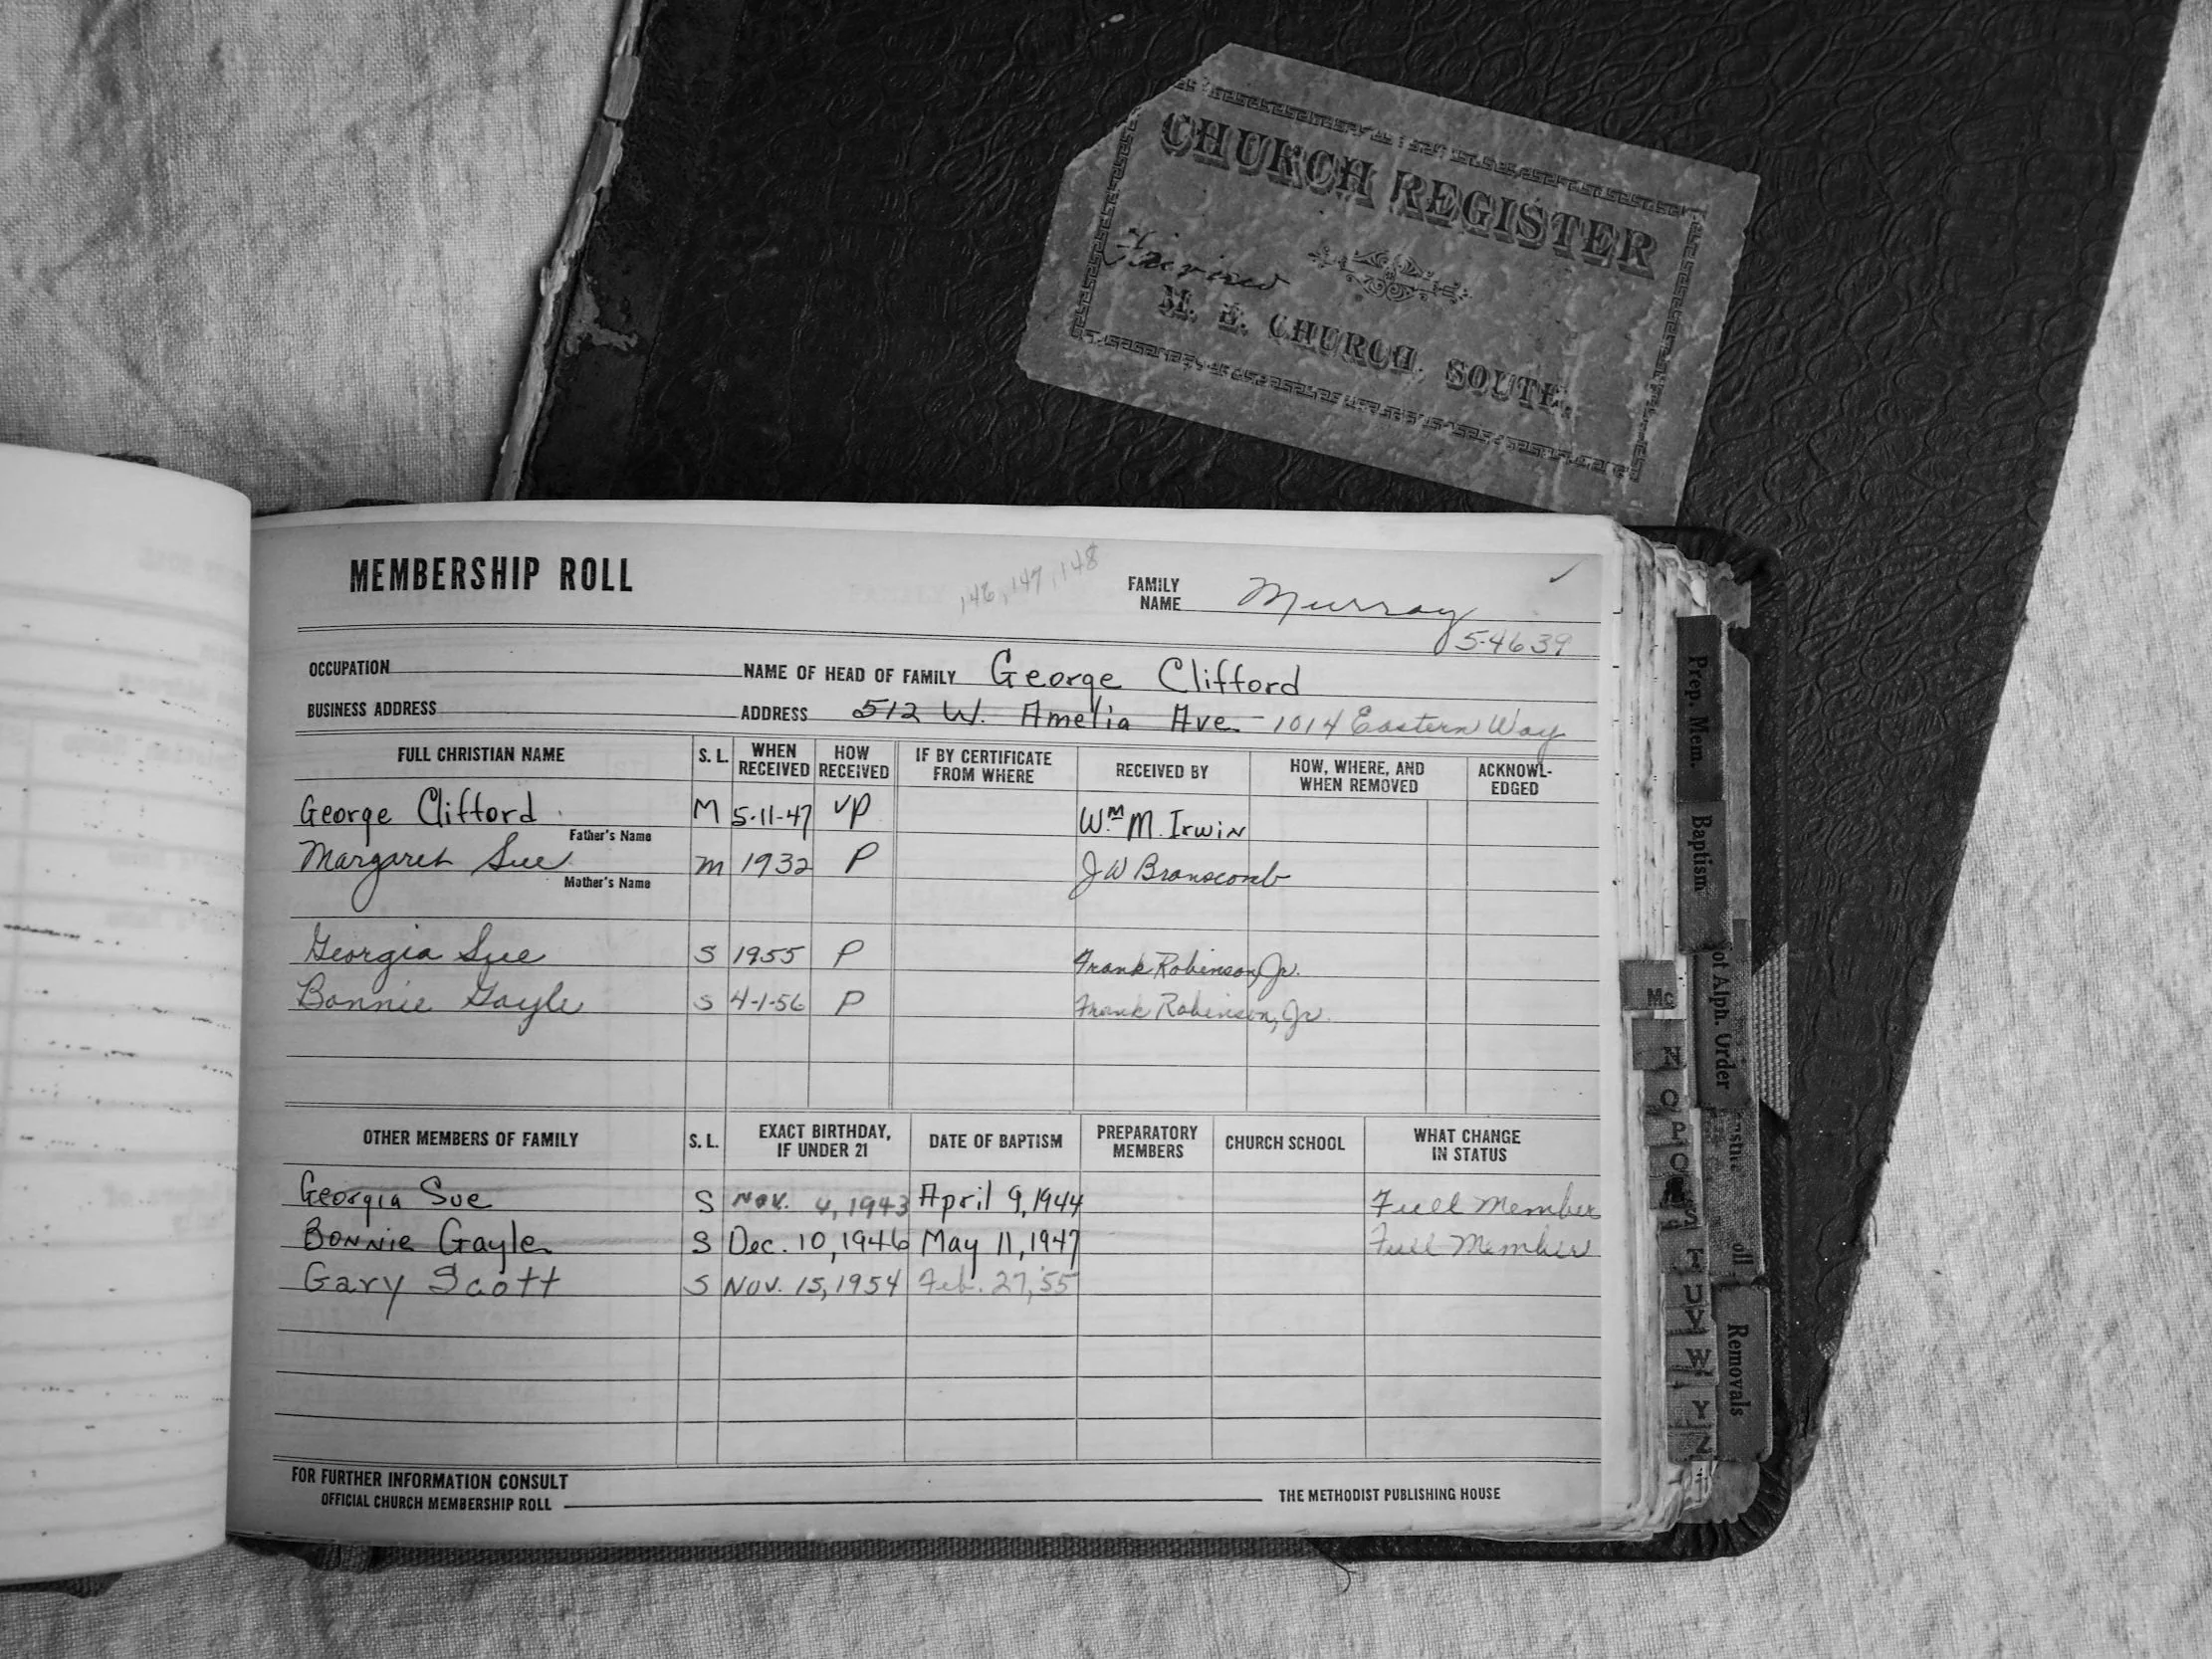 CHURCH REGISTER
M. E. CHURCH, SOUTH,
MEMBERSHIP ROLL
146, 147, 148
FAMILY NAME Murray
5-4639
OCCUPATION NAME OF HEAD OF FAMILY George Clifford
BUSINESS ADDRESS ADDRESS 512 W. Amelia Ave. - 1014 Eastern Way
FULL CHRISTIAN NAME S. L. WHEN RECEIVED HOW RECEIVED IF BY CERTIFICATE FROM WHERE RECEIVED BY HOW, WHERE, AND WHEN REMOVED ACKNOWL-EDGED
George Clifford M 5-11-47 VP Wm M. Irwin
Father's Name
Margaret Sue M 1932 P J W Branscomb
Mother's Name
Georgia Sue S 1955 P Frank Robinson, Jr.
Bonnie Gayle S 4-1-56 P Frank Robinson, Jr.
OTHER MEMBERS OF FAMILY S. L. EXACT BIRTHDAY, IF UNDER 21 DATE OF BAPTISM PREPARATORY MEMBERS CHURCH SCHOOL WHAT CHANGE IN STATUS
Georgia Sue S Nov. 4, 1943 April 9, 1944 Full Member
Bonnie Gayle S Dec. 10, 1946 May 11, 1947 Full Member
Gary Scott S Nov. 15, 1954 Feb. 27, '55
FOR FURTHER INFORMATION CONSULT
OFFICIAL CHURCH MEMBERSHIP ROLL THE METHODIST PUBLISHING HOUSE
Prep. Mem.
Baptism
Alph. Order
Removals
Mc
N
O
P
Q
S
T
U
V
W
Y
Z